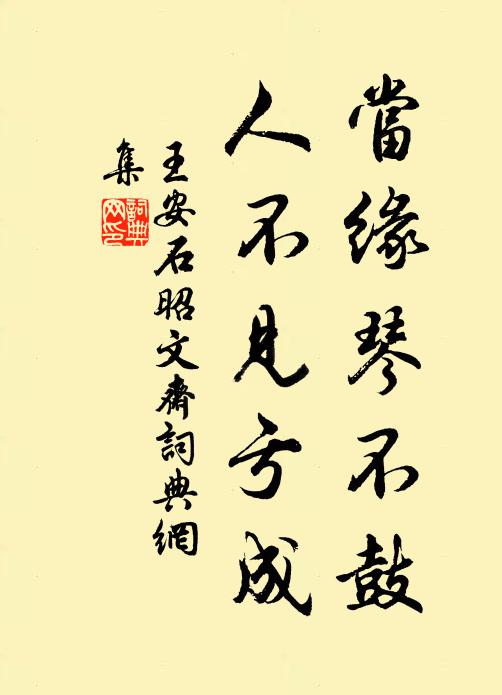 當缘琴不鼓
人不見亏成
王安石昭文齋詞典網
集
詞典
网印